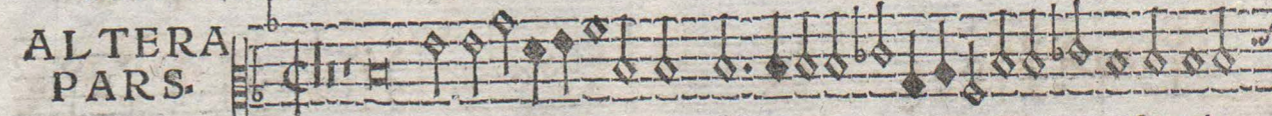 ALTERA
PARS.